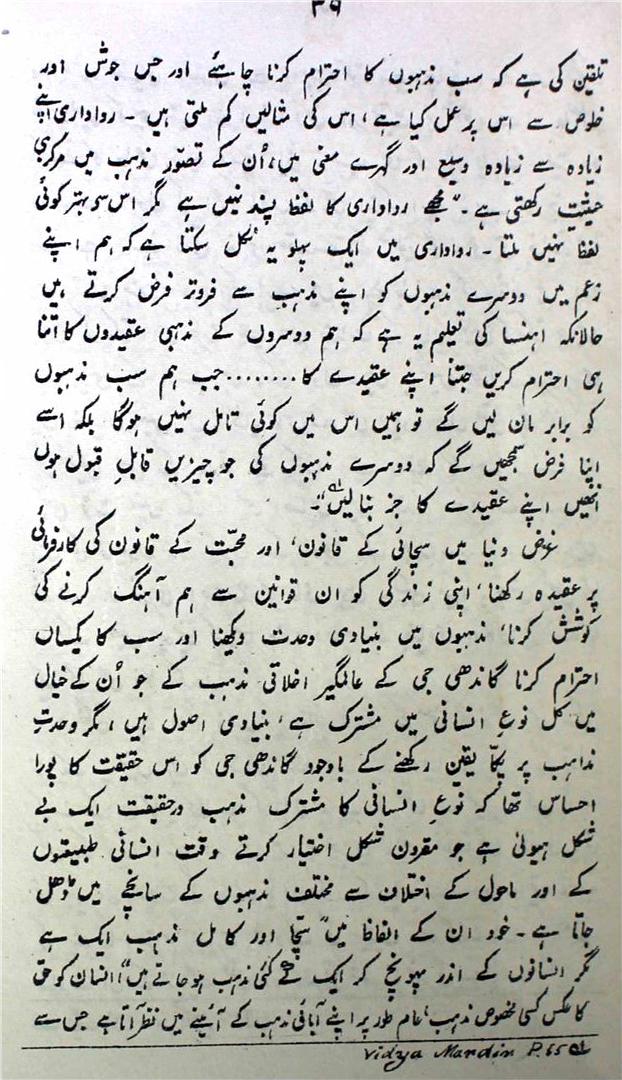 ۳۹
تلقین کی ہے کہ سب مذہبوں کا احترام کرنا چاہئے اور جس جوش اور
خلوص سے اس پر عمل کیا ہے، اس کی مثالیں کم ملتی ہیں ۔ رواداری اپنے
زیادہ سے زیادہ وسیع اور گہرے معنی میں، اُن کے تصوّرِ مذہب میں مرکزی
حیثیت رکھتی ہے۔ "مجھے رواداری کا لفظ پسند نہیں ہے مگر اس سے بہتر کوئی
لفظ نہیں ملتا ۔ رواداری میں ایک پہلو یہ نکل سکتا ہے کہ ہم اپنے
زعم میں دوسرے مذہبوں کو اپنے مذہب سے فروتر فرض کرتے ہیں
حالانکہ اہنسا کی تعلیم یہ ہے کہ ہم دوسروں کے مذہبی عقیدوں کا اتنا
ہی احترام کریں جتنا اپنے عقیدے کا........جب ہم سب مذہبوں
کو برابر مان لیں گے تو ہمیں اس میں کوئی تامل نہیں ہوگا بلکہ اسے
اپنا فرض سمجھیں گے کہ دوسرے مذہبوں کی جو چیزیں قابلِ قبول ہوں
انھیں اپنے عقیدے کا جز بنا لیں"۔
غرض دنیا میں سچائی کے قانون، اور محبّت کے قانون کی کارفرمائی
پر عقیدہ رکھنا، اپنی زندگی کو ان قوانین سے ہم آہنگ کرنے کی
کوشش کرنا، مذہبوں میں بنیادی وحدت دیکھنا اور سب کا یکساں
احترام کرنا گاندھی جی کے عالمگیر اخلاقی مذہب کے جو اُن کے خیال
میں کل نوعِ انسانی میں مشترک ہے، بنیادی اصول ہیں، مگر وحدتِ
مذاہب پر پکّا یقین رکھنے کے باوجود گاندھی جی کو اس حقیقت کا پورا
احساس تھا کہ نوعِ انسانی کا مشترک مذہب درحقیقت ایک بے
شکل ہیولیٰ ہے جو مقرون شکل اختیار کرتے وقت انسانی طبیعتوں
کے اور ماحول کے اختلاف سے مختلف مذہبوں کے سانچے میں ڈھل
جاتا ہے۔ خود ان کے الفاظ میں "سچّا اور کامل مذہب ایک ہے
مگر انسانوں کے اندر پہونچ کر ایک کے کئی مذہب ہو جاتے ہیں"، انسان کو حق
کا عکس کسی مخصوص مذہب، عام طور پر اپنے آبائی مذہب کے آئینے میں نظر آتا ہے جس سے
Vidya Mardin P.65